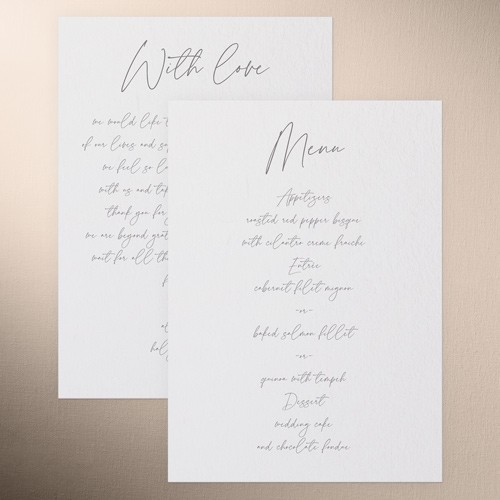 With love
we would like
of our lives and
we feel so
with us and
thank you for
we are beyond
wait for all
Menu
Appetizers
roasted red pepper bisque
with cilantro creme fraiche
Entrie
cabernet filet mignon
-or-
baked salmon fillet
-or-
quinoa with tempih
Dessert
wedding cake
and chocolate fondue